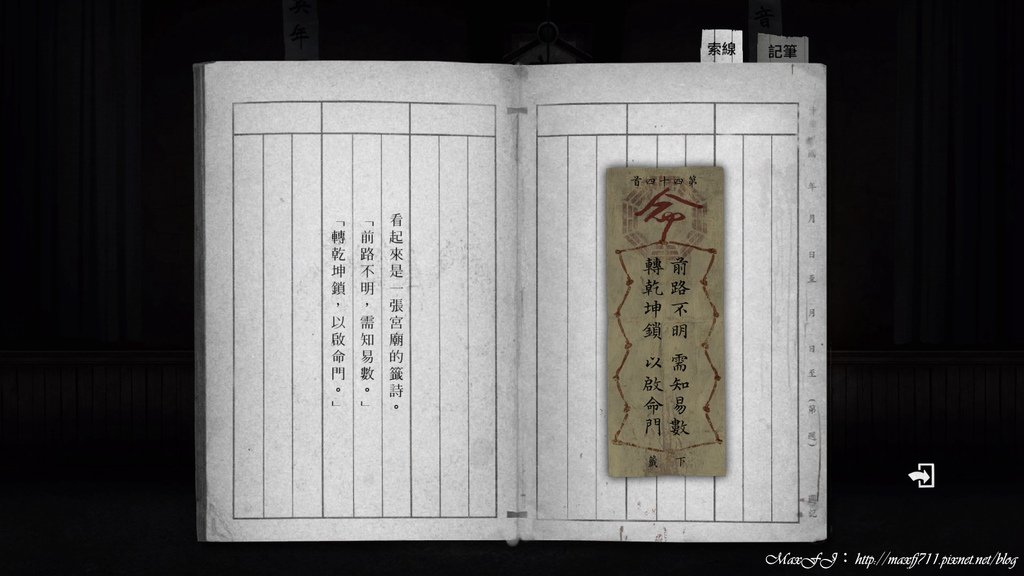 線索
筆記
看起來是一張宮廟的籤詩。
「前路不明，需知易數。」
「轉乾坤鎖，以啟命門。」
第四十四首
命
前路不明 需知易數
轉乾坤鎖 以啟命門
下籤
年 月 日至 月 日 至 (第 週)
年
音
MaxFJ：http://maxfj711.pixnet.net/blog